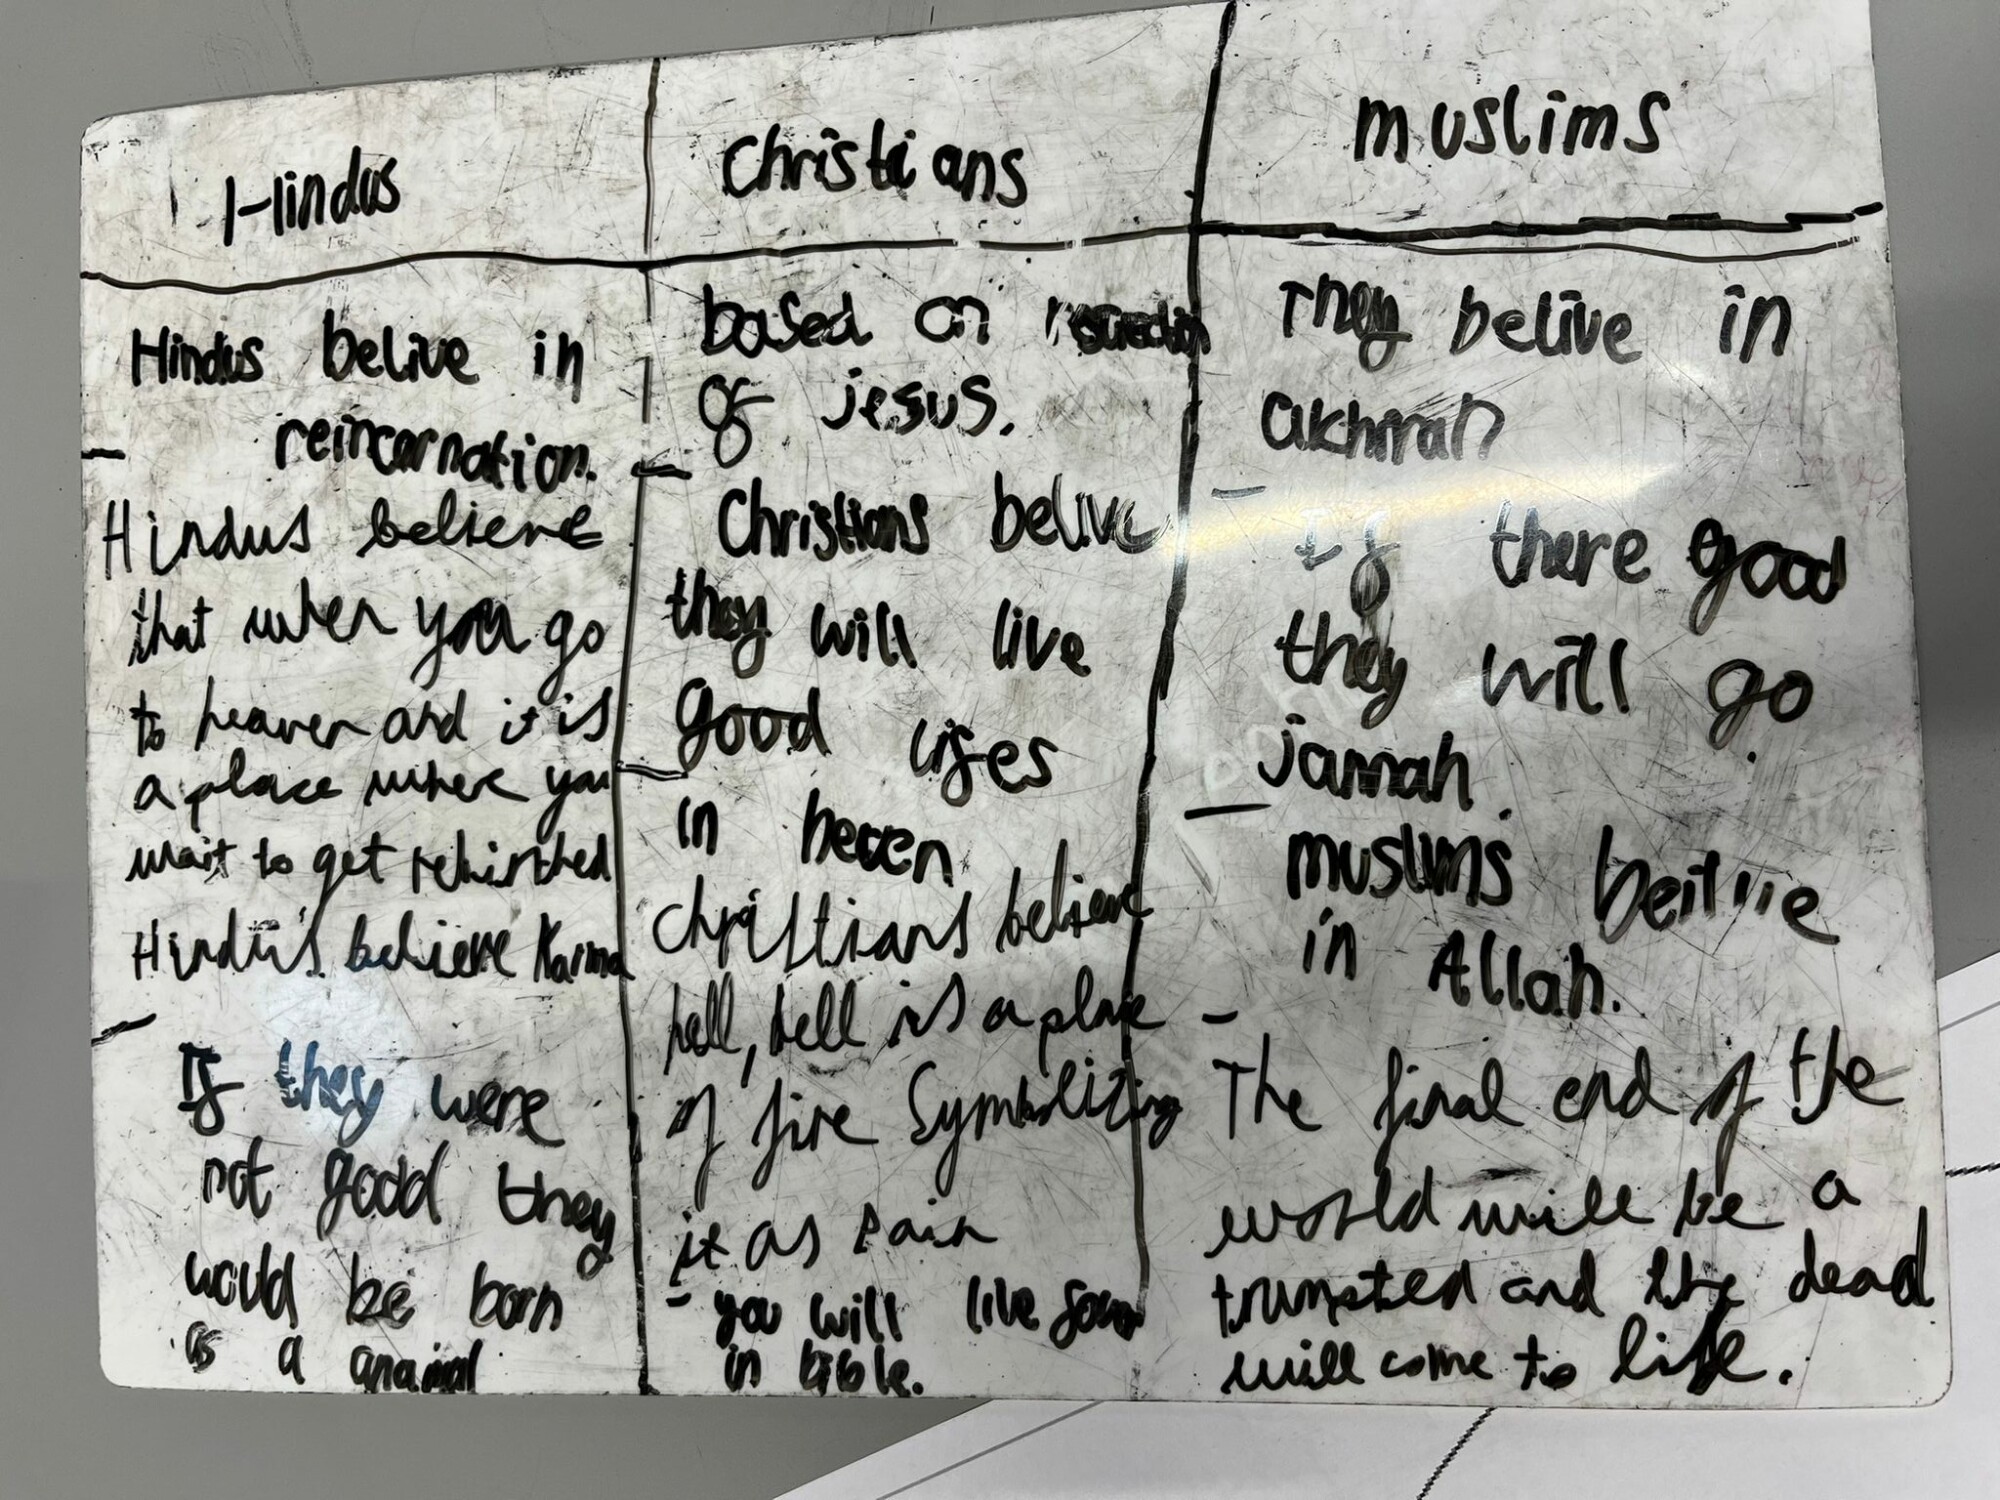 Hindus
Hindus belive in
reincarnation.
Hindus believe
that when you go
to heaven and it is
a place where you
wait to get rebirthed
Hindu's believe Karma
If they were
not godd they
would be born
as a anaimal
Christians
based on
of jesus.
Christians belive
they will live
good lifes
in heven
christians believe
hell, hell is a place
of fire Symbolizing
it as pain
you will live
in bible.
muslims
They belive in
akhirah
If there good
they will go
jannah.
muslims
in Allah.
The final end of the
world will be a
trumpted and the dead
will come to life.